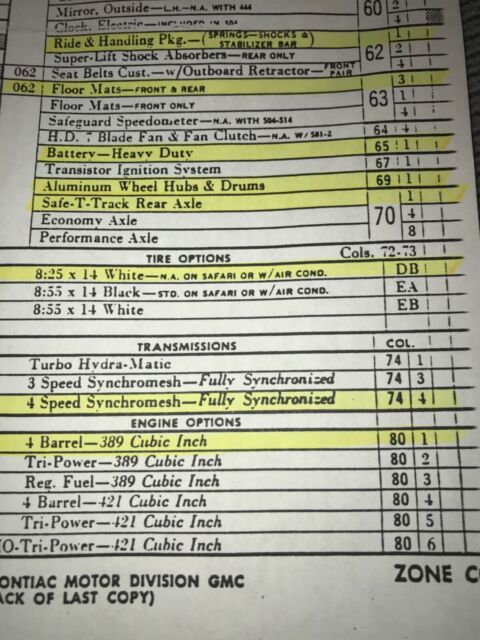 Mirror, Outside—L.H.—N.A. WITH 444 60 2
Clock, Electric—INCLUDED IN 504 4
Ride & Handling Pkg.—(SPRINGS—SHOCKS & STABILIZER BAR) 1
Super-Lift Shock Absorbers—REAR ONLY 62 2
062 Seat Belts Cust.—w/Outboard Retractor—FRONT PAIR 4
062 Floor Mats—FRONT & REAR 3
Floor Mats—FRONT ONLY 63 1
Safeguard Speedometer—N.A. WITH 504-514 4
H.D. 7 Blade Fan & Fan Clutch—N.A. W/581-2 64 4
Battery—Heavy Duty 65 1
Transistor Ignition System 67 1
Aluminum Wheel Hubs & Drums 69 1
Safe-T-Track Rear Axle 1
Economy Axle 70 4
Performance Axle 8
TIRE OPTIONS Cols. 72-73
8:25 x 14 White—N.A. ON SAFARI OR W/AIR COND. DB
8:55 x 14 Black—STD. ON SAFARI OR W/AIR COND. EA
8:55 x 14 White EB
TRANSMISSIONS COL.
Turbo Hydra-Matic 74 1
3 Speed Synchromesh—Fully Synchronized 74 3
4 Speed Synchromesh—Fully Synchronized 74 4
ENGINE OPTIONS
4 Barrel—389 Cubic Inch 80 1
Tri-Power—389 Cubic Inch 80 2
Reg. Fuel—389 Cubic Inch 80 3
4 Barrel—421 Cubic Inch 80 4
Tri-Power—421 Cubic Inch 80 5
HO-Tri-Power—421 Cubic Inch 80 6
ONTIAC MOTOR DIVISION GMC ZONE C
ACK OF LAST COPY)